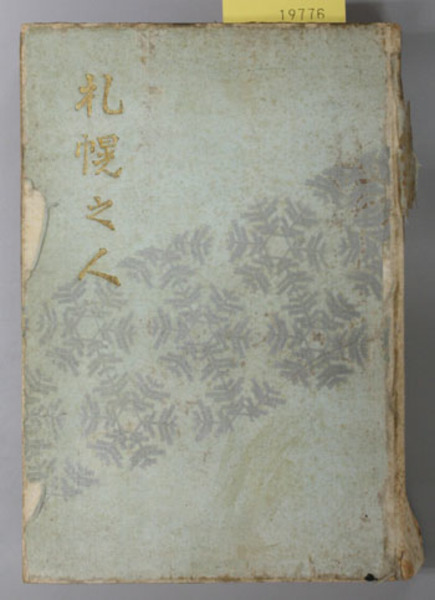 19776
札幌之人